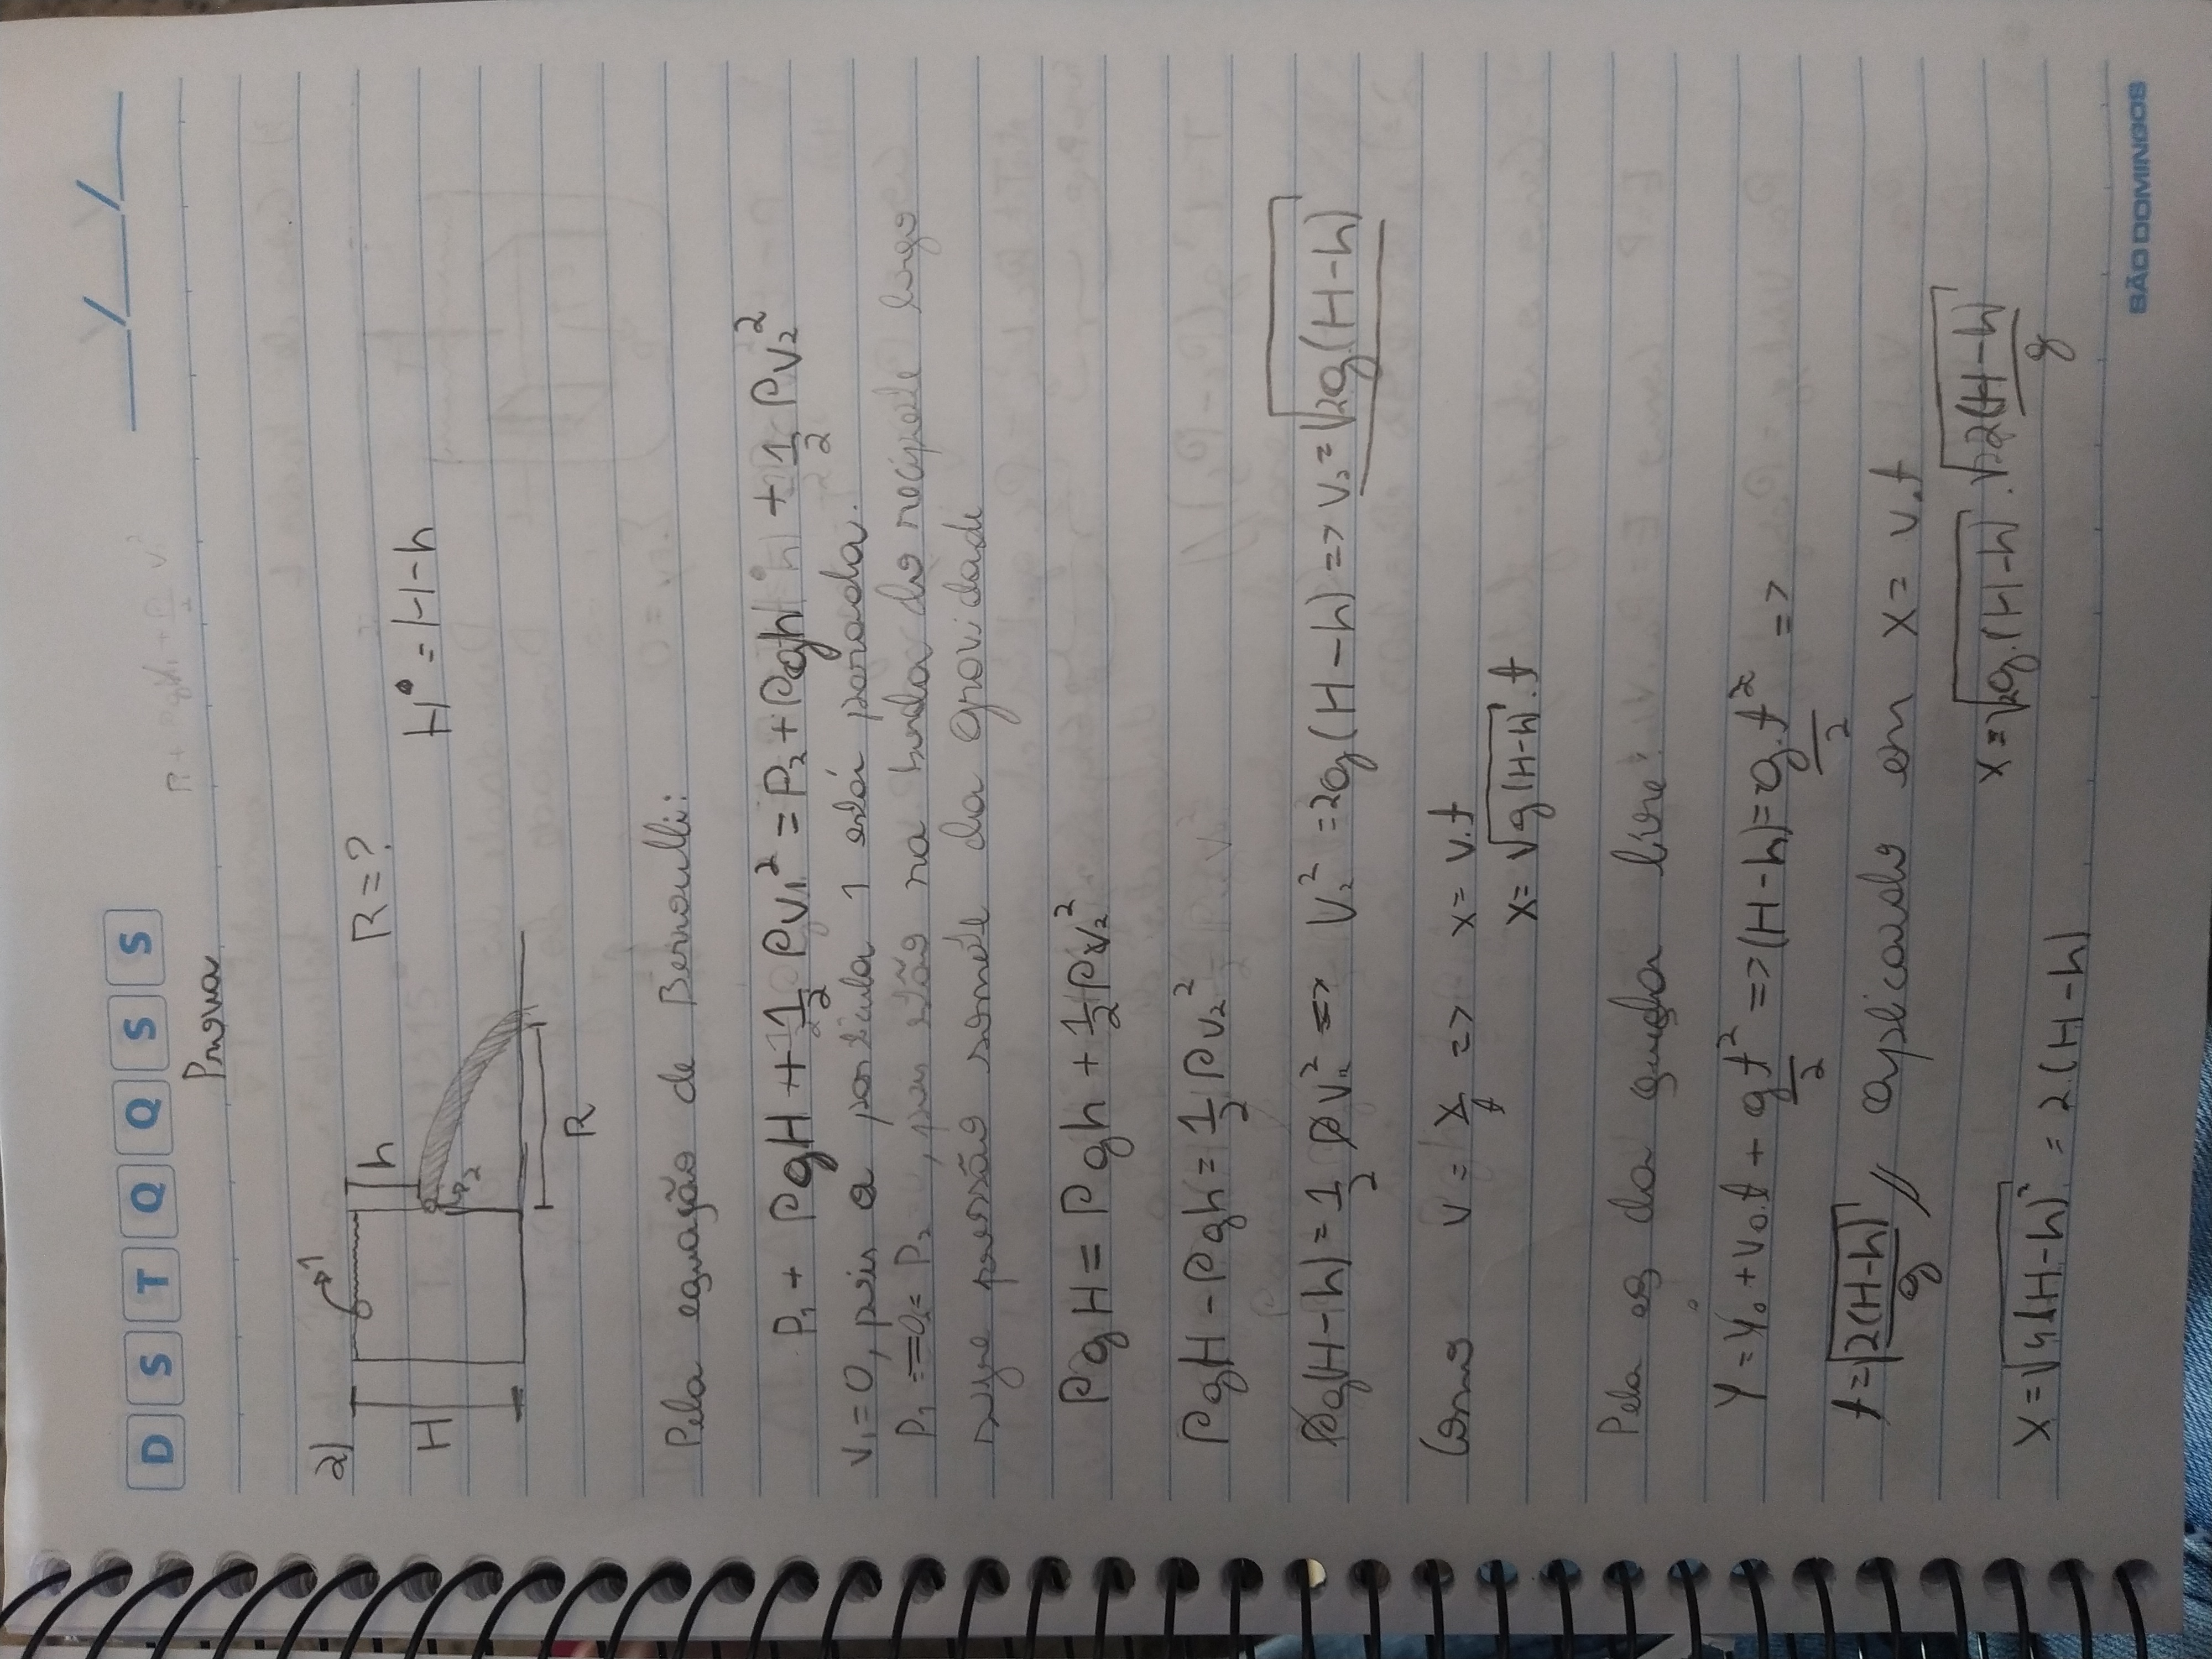 D S T Q Q S S
Prova
2)
1
H
h
2
R
R=?
H° = H-h
Pela equação de Bernoulli:
P₁ + ρgH + 1/2 ρv₁² = P₂ + ρgh + 1/2 ρv₂²
v₁ = 0, pois a partícula 1 está parada.
P₁ = 0 = P₂, pois estão na borda do recipiente logo
surge pressão somente da gravidade
ρgH = ρgh + 1/2 ρv₂²
ρgH - ρgh = 1/2 ρv₂²
ρg(H-h) = 1/2 ρv₂² => v₂² = 2g(H-h) => v₂ = √2g(H-h)
Como v = x/t => x = v.t
x = √g(H-h) . t
Pela eq da queda livre:
Y = Y₀ + v₀.t + gt²/2 => (H-h) = g.t²/2 =>
t = √2(H-h)/g // aplicando em x = v.t
x = √2g.(H-h) . √2(H-h)/g
x = √4(H-h)² = 2.(H-h)
SÃO DOMINGOS